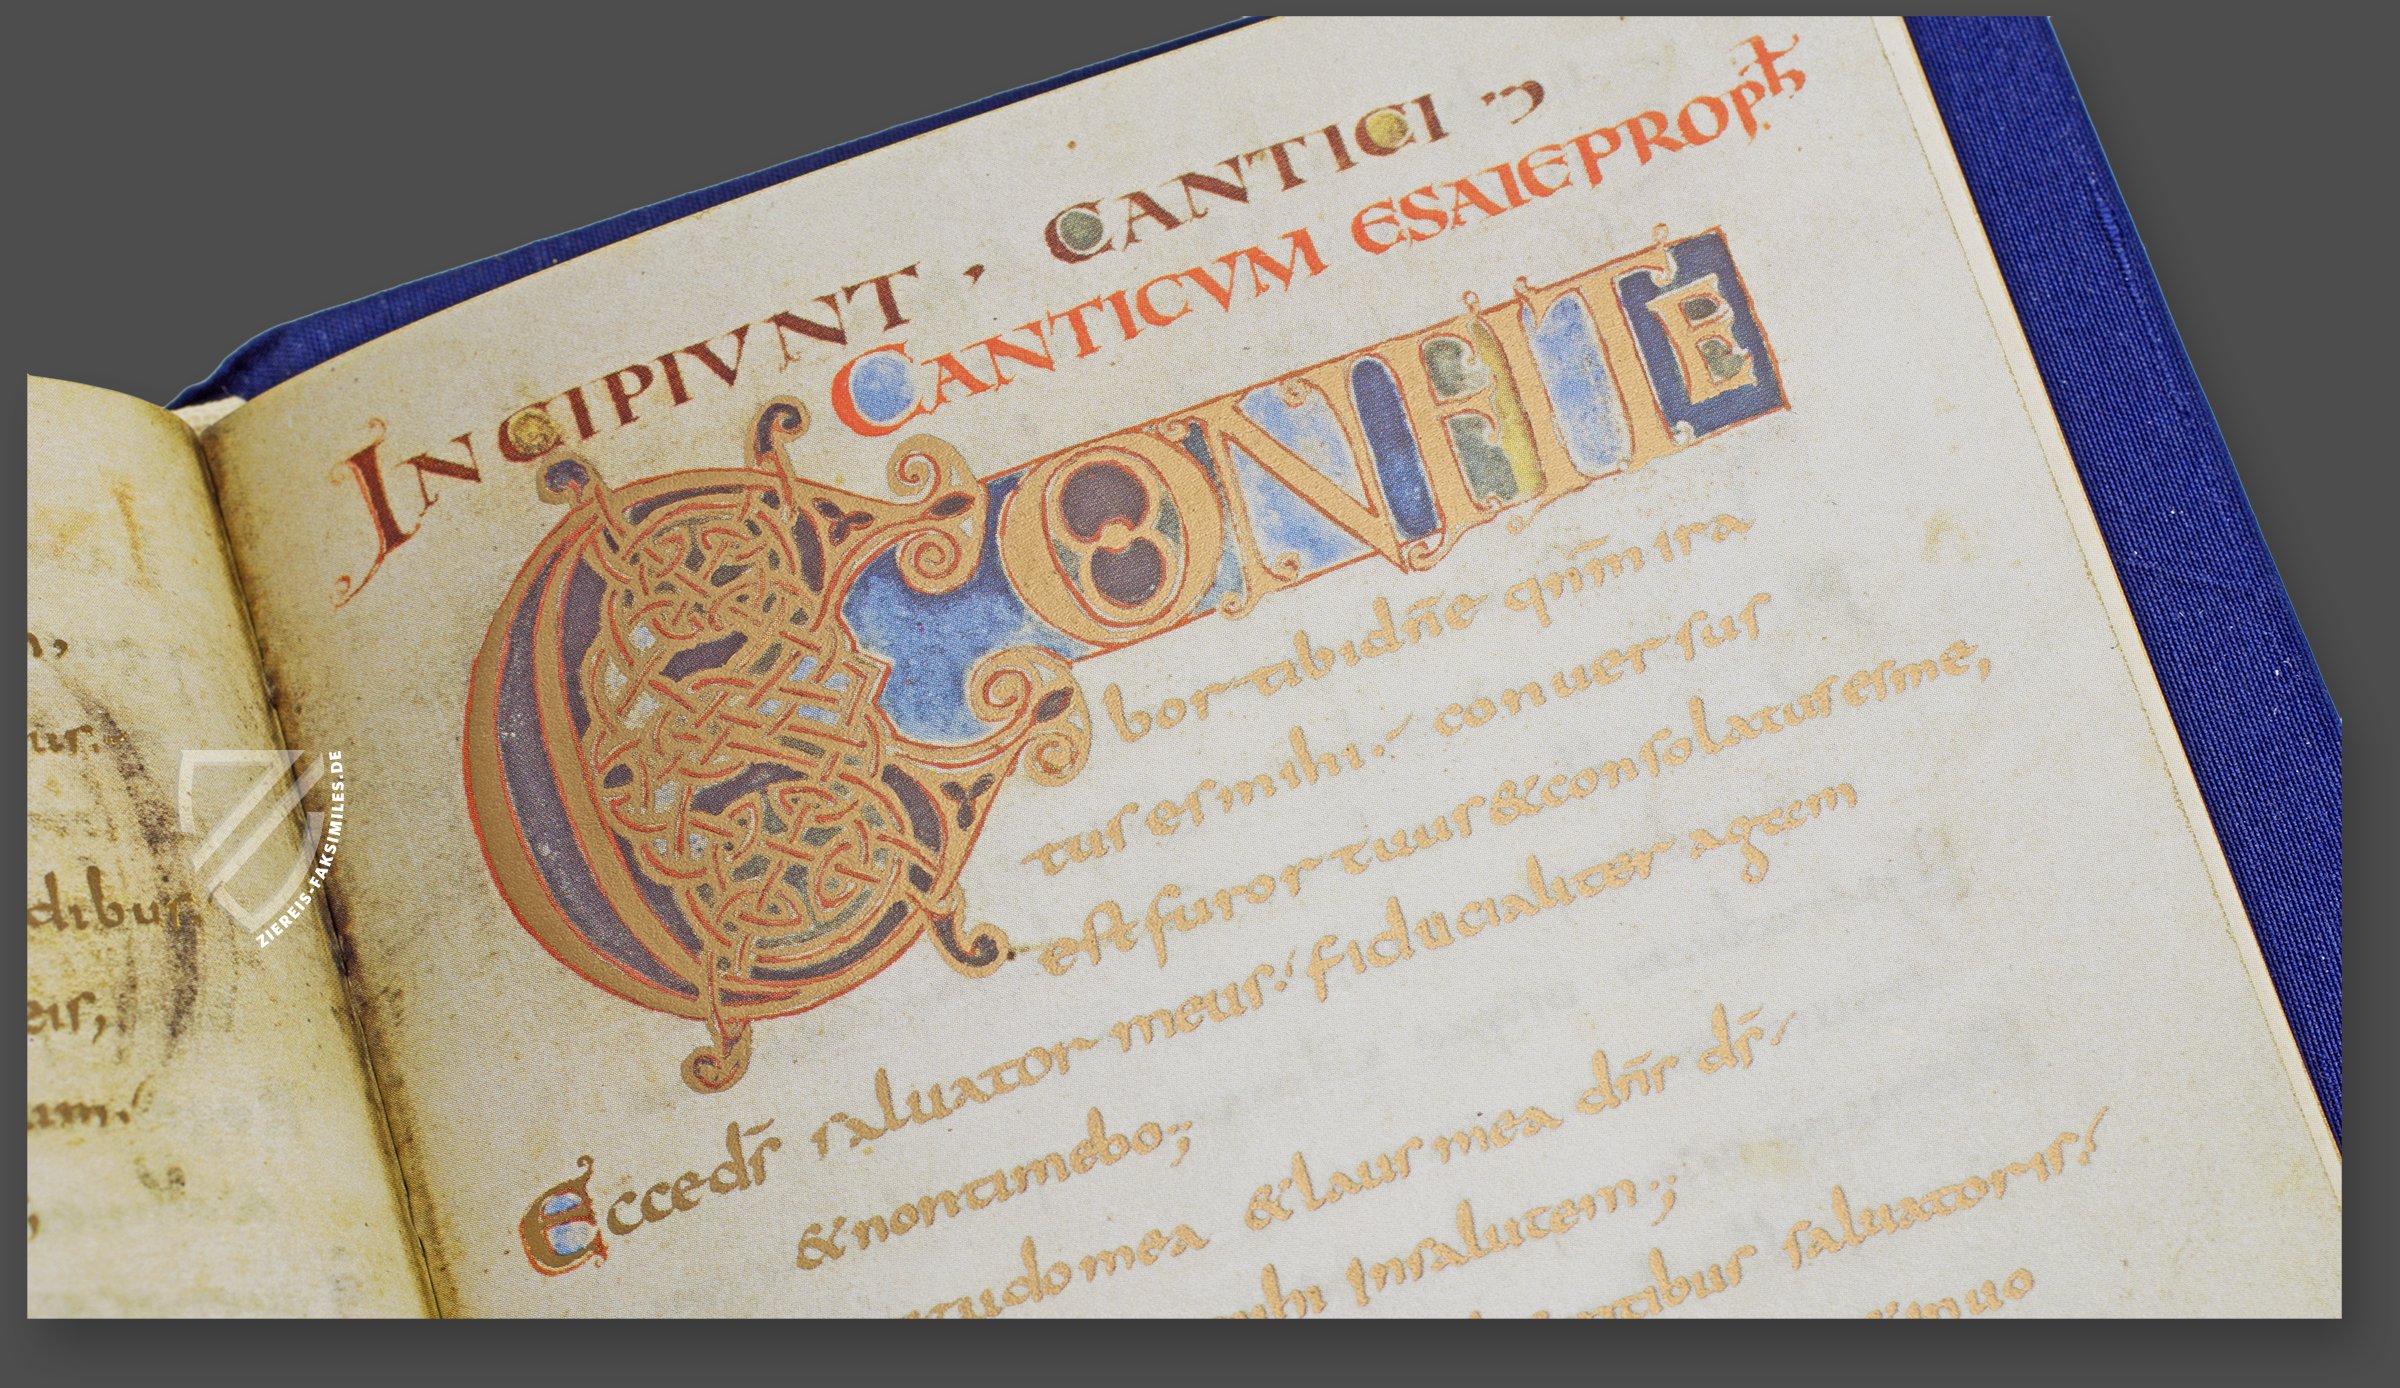 n,
ıur.
dibus
eis,
um.
INCIPIVNT, CANTICI
CANTICVM ESAIE PROPH
CONFITE
bor tibi dn̄e qm̄m ira
tus es mihi. conuersus
est furor tuus & consolatus es me,
Ecce dr̄ saluator meus. fiducialiter agam
& non timebo;
tudo mea & laus mea dn̄s ds̄.
mihi In salutem;
tibus saluatoris.
ZIEREIS-FAKSIMILES.DE